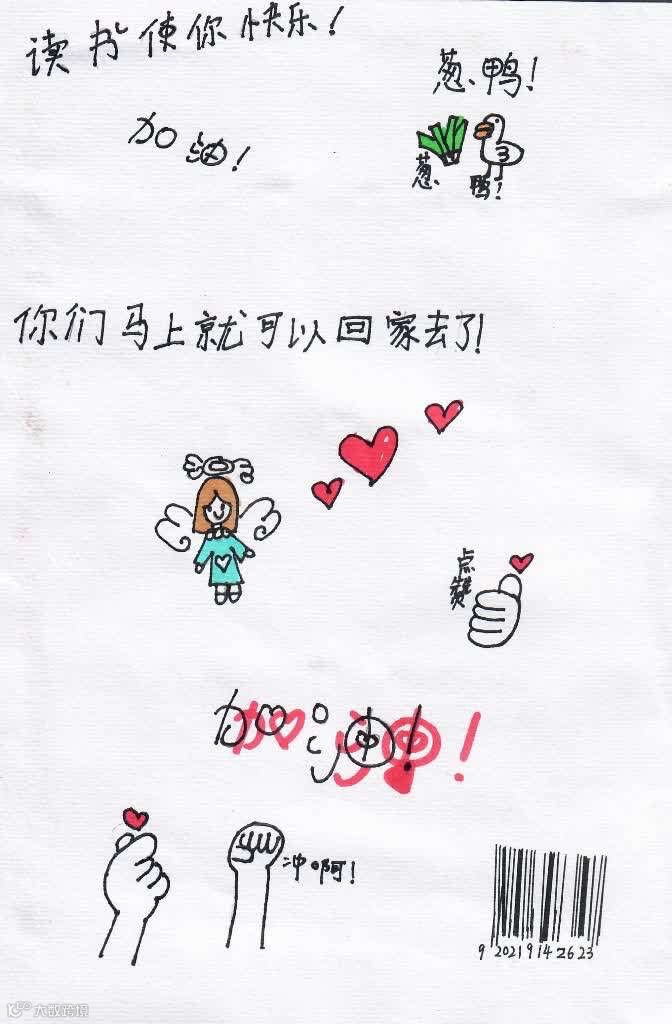 读书使你快乐！
葱鸭！
加油！
葱
鸭！
你们马上就可以回家去了！
点赞
加油！
冲啊！
9 20219142623
大数跨境